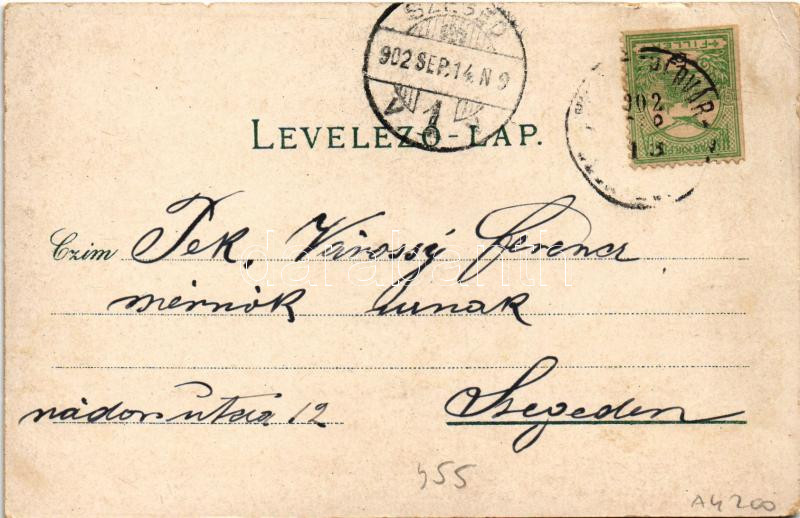 SZEGED
902 SEP. 14. N 9
1
FILLÉR
902
LEVELEZŐ-LAP.
Czim Tek. Várossy Ferencz
mérnök urnak
nádor utcza 12 Szegeden
455
A4200